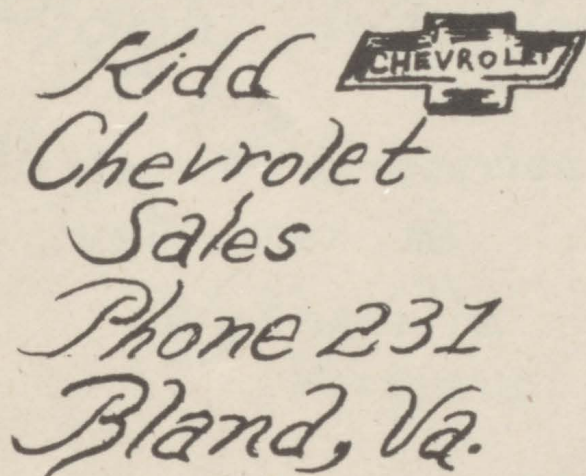 Kidd CHEVROLET
Chevrolet
Sales
Phone 231
Bland, Va.